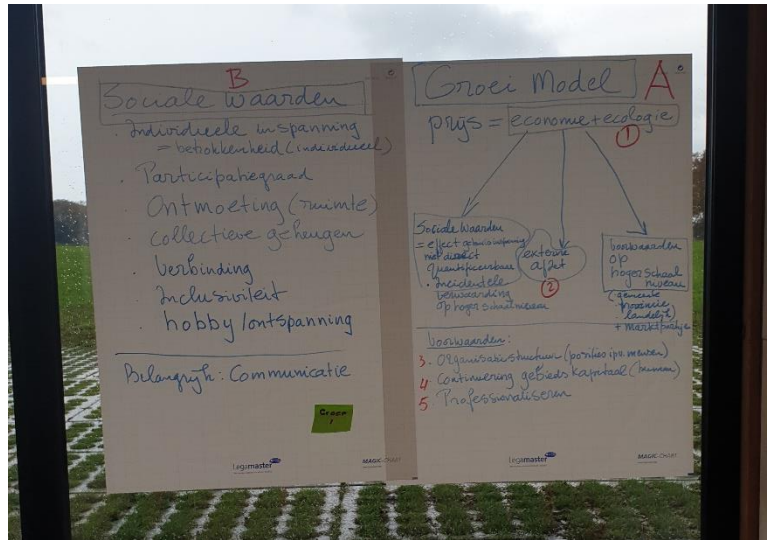 B
Sociale Waarden
· Individuele inspanning
= betrokkenheid (individueel)
· Participatiegraad
· Ontmoeting (ruimte)
· collectieve geheugen
· Verbinding
· Inclusiviteit
· hobby/ontspanning
Belangrijk: Communicatie
Groep
1
Legamaster
MAGIC-CHART
Groei Model
A
prijs = economie + ecologie
1
Sociale Waarden
= effect
niet direct
· incidentele
op hoger schaalniveau
externe
afzet
2
voorwaarden
op
hoger schaal
niveau
(gemeente
provincie
landelijk)
+ marktpartije
Voorwaarden:
3. Organisatiestructuur (posities ipv. mensen)
4 Continuering gebiedskapitaal (human)
5 Professionaliseren
Legamaster
MAGIC-CHART